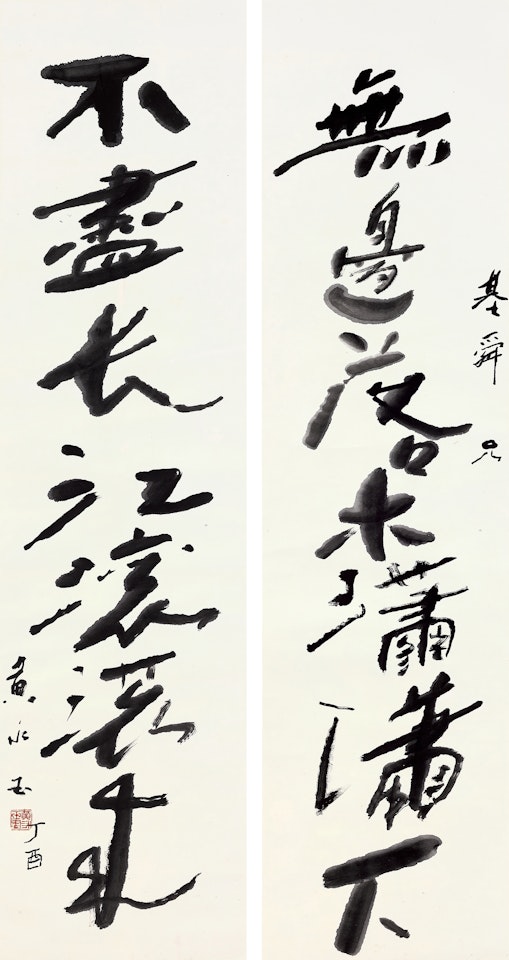 無邊落木瀟瀟下
基舜兄
不盡长江滾滾来
黄永玉
丁酉